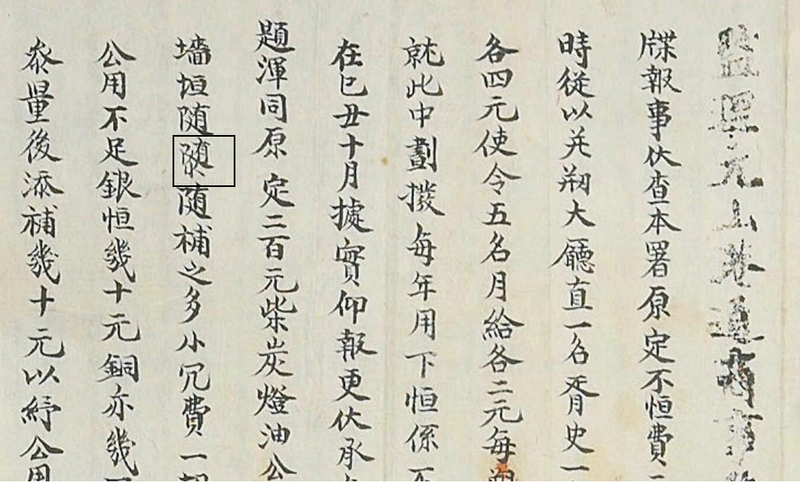 監理元山港通商事
牒報事伏查本署原定不恒費
時從以并朔大廳直一名胥史一
各四元使令五名月給各二元每朔
就此中劃撥每年用下恒係不
在已丑十月據實仰報更伏承
題渾同原定二百元柴炭燈油公
墻垣随随補之多小冗費一切
公用不足銀恒幾十元銅亦幾
叅量後添補幾十元以紓公用